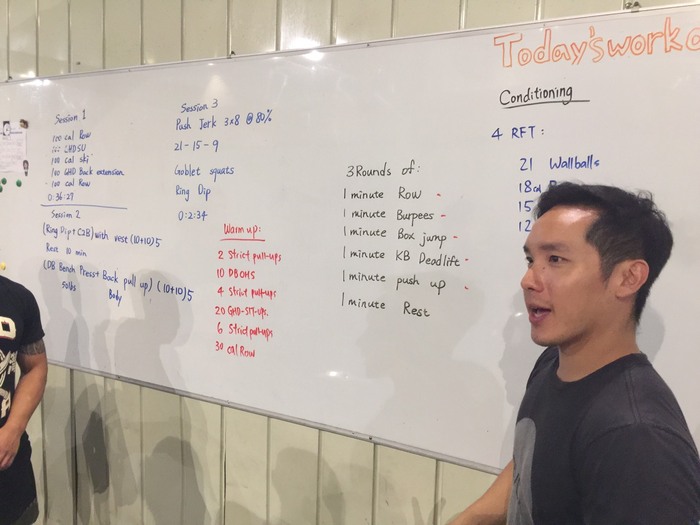 Today's worko
Session 1
100 cal Row
100 GHDSU
100 cal ski
100 GHD Back extension
100 cal Row
0:36:27
Session 2
(Ring Dip + C2B) with vest (10+10)5
Rest 10 min
(DB Bench Press + Back pull up) (10+10)5
50lbs Body
Session 3
Push Jerk 3x8 @ 80%
21-15-9
Goblet squats
Ring Dip
0:2:34
Warm up:
2 Strict pull-ups
10 DB OHS
4 Strict pull-ups
20 GHD-SIT-ups.
6 Strict pull-ups
30 cal Row
3 Rounds of:
1 minute Row -
1 minute Burpees -
1 minute Box jump -
1 minute KB Deadlift -
1 minute push up -
1 minute Rest
Conditioning
4 RFT:
21 Wallballs
18
15
12